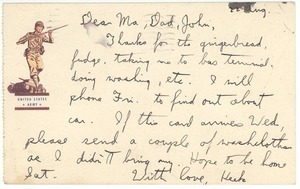 22 Aug.
Dear Ma, Dad, John,
Thanks for the gingerbread,
fudge, taking me to bus terminal,
doing washing, etc. I will
phone Fri. to find out about
car. If the card arrives Wed.
please send a couple of washcloths
as I didn't bring my. Hope to be home
Sat. With love, Herb
UNITED STATES
ARMY